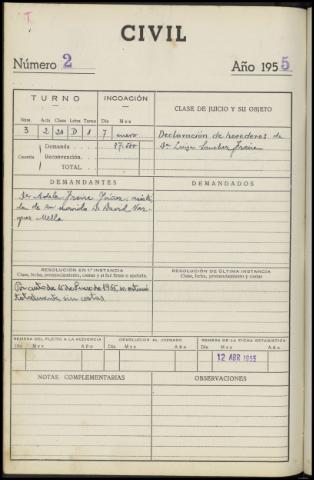 T
CIVIL
Número 2
Año 1955
TURNO
INCOACIÓN
CLASE DE JUICIO Y SU OBJETO
Núm. Año Clase Letra Turno Día Mes
3 2 20 D 1 7 enero
Declaración de herederos de
Dª Luisa Sanchez Freire
Demanda 37.500
Cuantía Reconvención
TOTAL
DEMANDANTES
DEMANDADOS
Dª Adela Freire
da de su marido D. David Vaz-
quez Mella
RESOLUCIÓN EN 1ª INSTANCIA
Clase, fecha, pronunciamiento, costas y si fué firme o apelada.
RESOLUCIÓN DE ÚLTIMA INSTANCIA
Clase, fecha, pronunciamiento y costas
Por auto de de 1955 se estimó
totalmente sin costas
REMESA DEL PLEITO A LA AUDIENCIA
DEVOLUCIÓN AL JUZGADO
REMESA DE LA FICHA ESTADÍSTICA
Día Mes Año Día Mes Año Día Mes Año
12 ABR 1955
NOTAS COMPLEMENTARIAS
OBSERVACIONES